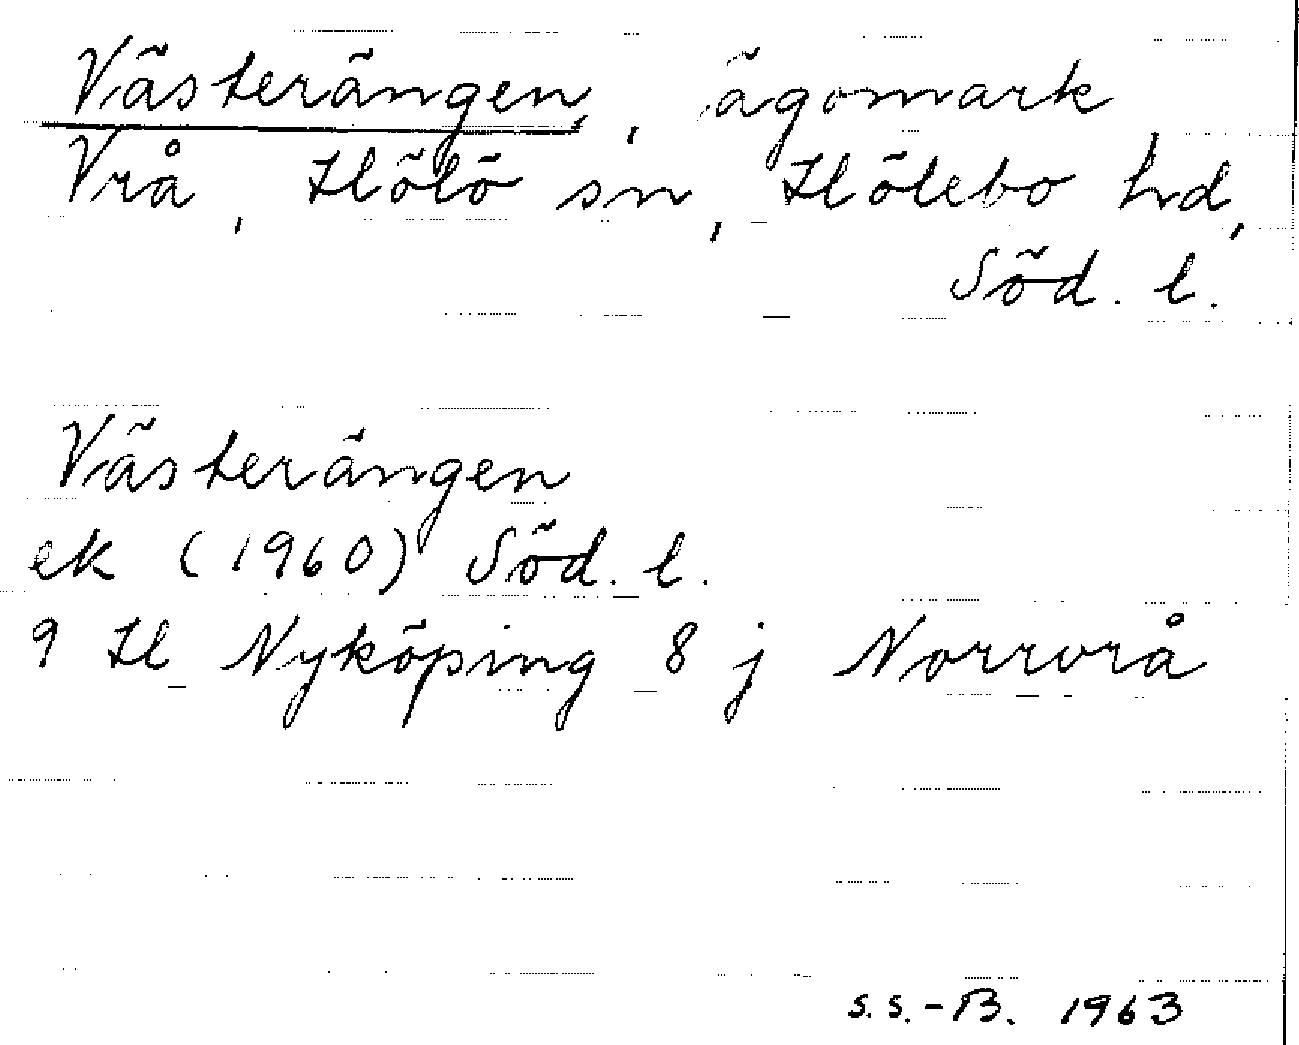 Västerängen, ägomark
Vrå, Hölö sn, Hölebo hd,
Söd. l.
Västerängen
ek (1960) Söd. l.
9 H Nyköping 8 j Norrvrå
S.S.-B. 1963